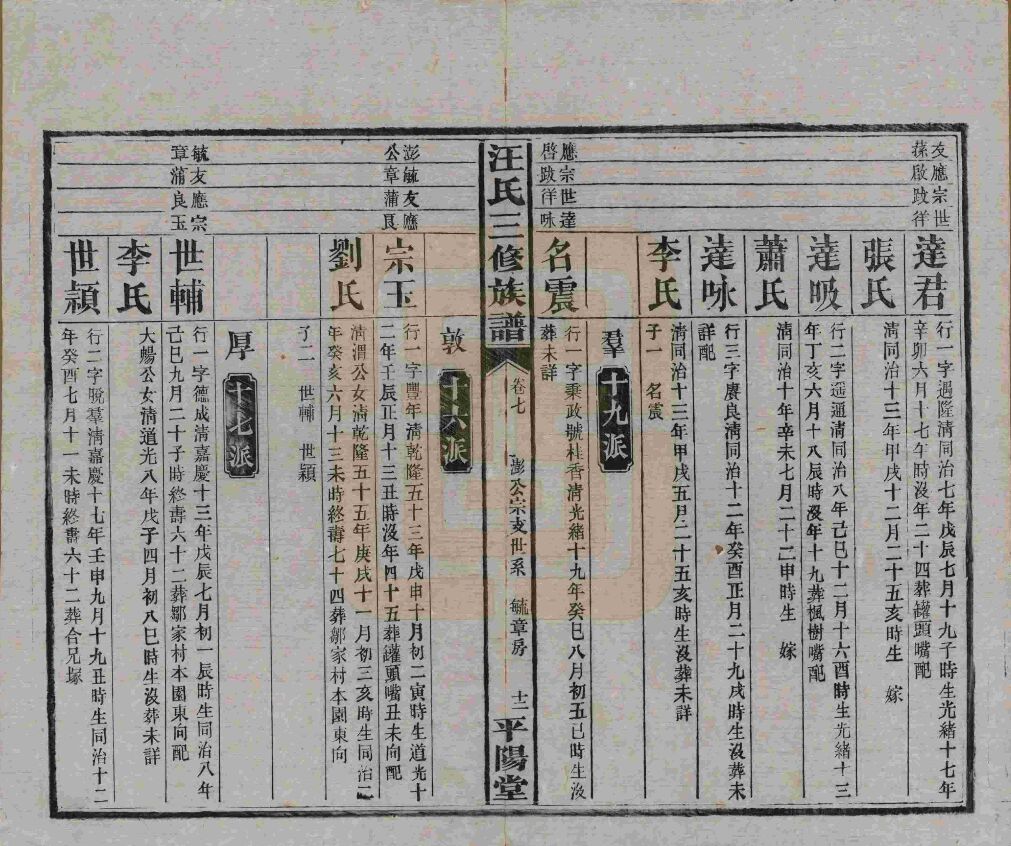 友應宗世
蓀啟跂徉
達君
行一字遐隆清同治七年戊辰七月十九子時生光緒十七年
辛卯六月十七午時沒年二十四葬罐頭嘴配
張氏
清同治十三年甲戌十二月二十五亥時生 嫁
達吸
行二字遥遁清同治八年己巳十二月十六酉時生光緒十三
年丁亥六月十八辰時沒年十九葬楓樹嘴配
蕭氏
清同治十年辛未七月二十二申時生 嫁
達咏
行三字賡良清同治十二年癸酉正月二十九戌時生沒葬未
詳配
李氏
清同治十三年甲戌五月二十五亥時生沒葬未詳
子一 名震
羣 十九派
應宗世達
啓跂徉咏
名震
行一字秉政號桂香清光緒十九年癸巳八月初五巳時生沒
葬未詳
汪氏三修族譜
卷七
澎公宗支世系 毓章房
十二
平陽堂
敦 十六派
澎毓友應
公章蒲良
宗玉
行一字豐年清乾隆五十三年戊申十月初二寅時生道光十
二年壬辰正月十三丑時沒年四十五葬罐頭嘴丑未向配
劉氏
清渭公女清乾隆五十五年庚戌十一月初三亥時生同治二
年癸亥六月十三未時終壽七十四葬鄒家村本園東向
子二 世輔 世穎
厚 十七派
毓友應宗
章蒲良玉
世輔
行一字德成清嘉慶十三年戊辰七月初一辰時生同治八年
己巳九月二十子時終壽六十二葬鄒家村本園東向配
李氏
大暢公女清道光八年戊子四月初八巳時生沒葬未詳
世穎
行二字脫羣清嘉慶十七年壬申九月十九丑時生同治十二
年癸酉七月十一未時終壽六十二葬合兄塚